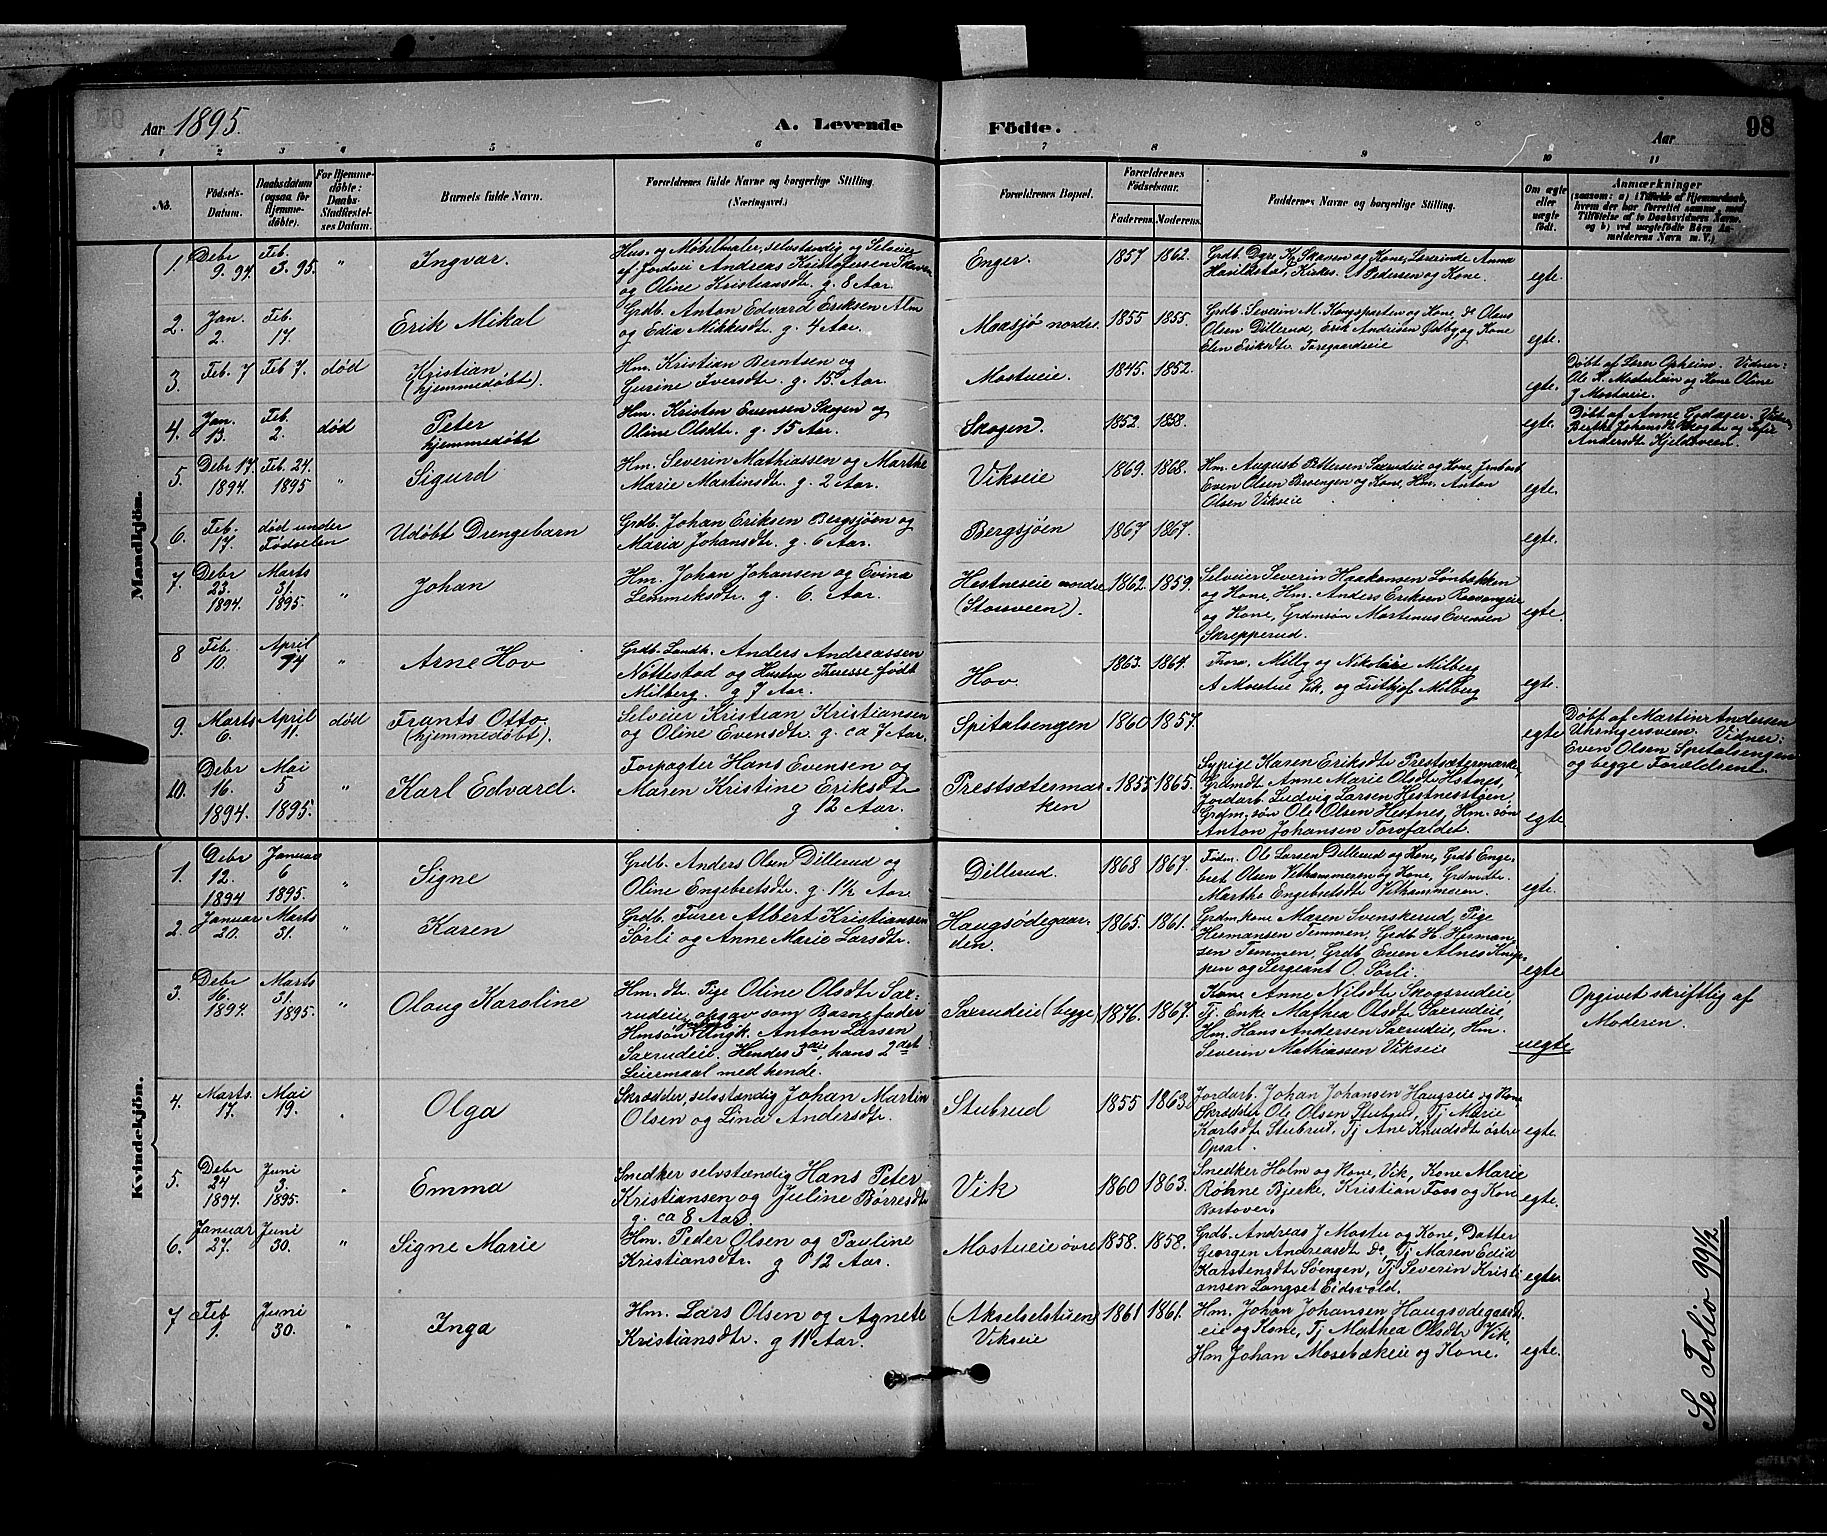 Aar 1895.
A. Levende Födte.
Aar
98
1 2 3 4 5 6 7 8 9 10 11
No.
Födsels-Datum.
Daabsdatum (ogsaa for Hjemmedøbte).
For Hjemmedøbte: Daabs-Stadfestelses Datum.
Barnets fulde Navn.
Forældrenes fulde Navne og borgerlige Stilling. (Næringsvei.)
Forældrenes Bopæl.
Forældrenes Fødselsaar.
Faderens. Moderens.
Faddernes Navne og borgerlige Stilling.
Om ægte eller uægte født.
Anmærkninger
Mandkjön.
1. Debr 9. 94. Feb. 3. 95. " Ingvar.
Hus. og Møbelmaler, selvstændig og Selveier
af Jordvei Andreas Kristofersen
og Oline Kristiansdtr. g. 8 Aar.
Enger. 1857 1862.
Grdb. Dyre K. Skaven og Kone, Leverinde Anna
Kirkes. A Pedersen og Kone.
egte.
2. Jan. 2. Feb. 17. Erik Mikal
Grdb. Anton Edvard Eriksen Alm
og Edia Mikkesdtr. g. 4 Aar.
Maasjø nordre. 1855 1855.
Grdb. Severin M. Kongsparten og Kone, do Olaus
Olsen Dillerud, Erik Andersen Ødbyog Kone
Elen Eriksdtr.
egte.
3. Feb. 7 Feb 7. død Kristian
(hjemmedøbt).
Hm. Kristian Berntsen og
Gurine Iversdtr. g. 15. Aar.
Mostueie. 1845. 1852.
egte.
Døbt af Søren Opheim. Vidner:
og Kone Oline
Mostueie.
4. Jan. 13. Feb. 2. død Peter
hjemmedøbt
Hm. Kristen Evensen Skogen og
Oline Olsdtr. g. 15 Aar.
Skogen. 1852. 1858.
egte.
Døbt af Anne
Berthe Johansdtr Skogen og Sofie
Andersdtr Kjeldsveen.
5. Debr 17. 1894. Feb. 24. 1895 " Sigurd
Hm. Severin Mathiassen og Marthe
Marie Martinsdtr. g. 2 Aar.
Vikseie 1869. 1868.
Hm. August Pettersen Saxrudeie og Kone,
Even Olsen Brvengen og Kone, Hm. Anton
Olsen Vikseie
egte.
6. Feb. 17. død under Fødselen Udøbt Drengebarn
Grdb. Johan Eriksen Bergsjøen og
Maria Johansdtr. g. 6 Aar.
Bergsjøen 1867 1867.
egte.
7. Debr 23. 1894. Marts 31. 1895. " Johan
Hm. Johan Johansen og Evina
Lemmeksdtr. g. 6. Aar.
Hestneseie nordre
(Storsveen). 1862. 1859.
Selveier Severin Haakonsen Lönbakken
og Kone, Hm. Anders Eriksen
og Kone, Grdmsøn Martinus Evensen
Skrepperud.
egte.
8 Feb. 10 April 14 " Arne Hov
Grdb. Landh. Anders Andreassen
Nøttestad og Hustru Theresse født
Milberg. g 7 Aar.
Hov. 1863. 1864.
Frøk. Milly og Nikoline Milberg
A Mostue Vik, og Frithjof Milberg
egte.
9. Marts 6. April 11. død Frants Otto
(hjemmedøbt).
Selveier Kristian Kristiansen
og Oline Evensdtr. g. ca 7 Aar.
Spitalsengen 1860 1857.
egte
Døbt af Martin Andersen
Vidner:
Even Olsen Spitalsengen
og begge Forældrene.
10. Debr 16. 1894. Mai 5 1895. " Karl Edvard.
Forpagter Hans Evensen og
Maren Kristine Eriksdtr
g 12 Aar.
Prestsætermarken 1855 1865.
Sypige Karen Eriksdtr Prestsætermarken,
Grdmdt Anne Marie Olsdtr Hstnes,
Jordarb. Ludvig Larsen Hestnesstøen,
Grdm. søn Ole Olsen Hestnes, Hm. søn
Anton Johansen Torsfaldet.
egte
Kvindekjön.
1. Debr 12. 1894 Januar 6 1895. " Signe
Grdb. Anders Olsen Dillerud og
Oline Engebretsdtr. g. 1½ Aar.
Dillerud. 1868 1867.
Føder. Ole Larsen Dillerud og Kone, Grdb Enge-
bret Olsen Vethammeren og Kone, Grdmdtr.
Marthe Engebretsdtr Vethammeren.
egte.
2. Januar 20. Marts 31. " Karen
Grdb. Furer Albert Kristiansen
Sørli og Anne Marie Larsdtr.
Haugsødegaar-
den. 1865. 1861.
Grdmkone Maren Svenskerud, Pige
Hermansen Temmen, Grdb. H. Herman-
sen Temmen, Grdb Even Alnes Knip-
pen og Sergeant O. Sørli.
egte
3. Debr 16. 1894. Marts 31. 1895. " Olaug Karoline
Hm. dtr. Pige Oline Olsdtr Sax-
rudeie, opgav som Barnefader
Hmsøn Ungk. Anton Larsen
Saxrudeie. Hendes 3die, hans 2det
Leiermaal med hende.
Saxrudeie (begge) 1876. 1867.
Kone Anne Nilsdtr Skogsrudeie,
Tj. Enke Mathea Olsdtr Saxrudeie,
Hm. Hans Andersen Saxrudeie, Hm.
Severin Mathiassen Vikseie
uegte
Opgivet skriftlig af
Moderen.
4. Marts. 17. Mai 19. " Olga
Skrædder, selvstændig Johan Martin
Olsen og Lina Andersdtr.
Stubrud 1855 1863.
Jordarb. Johan Johansen Haugseie og Kone,
Skrædder Ole Olsen Stubrud, Tj Marie
Karlsdtr Stubrud, Tj Ane Knudsdtr østre
Opsal.
egte.
5. Debr 24 1894. Juni 3. 1895. " Emma
Snedker selvstændig Hans Peter
Kristiansen og Juline Børresdtr
g. ca 8 Aar.
Vik 1860 1863.
Snedker Holm og Kone, Vik, Kone Marie
Røhne Bjerke, Kristian Foss og Kone
egte.
6. Januar 27. Juni 30. " Signe Marie
Hm. Peder Olsen og Pauline
Kristiansdtr. g 12 Aar.
Mostueie øvre 1858. 1858.
Grdb. Andreas J Mostu og Kone, Datter
Georgen Andreasdt do, Tj Maren Edid
Karstensdtr Søengen, Tj Severin Kristi-
ansen Langset Eidsvold.
egte.
7 Feb 1. Juni 30. " Inga
Hm. Lars Olsen og Agnete
Kristiansdtr. g 11 Aar.
(Akselselstuen)
Vikseie 1861 1861.
Hm. Johan Johansen Haugsødegaards-
eie og Kone, Tj Mathea Olsdtr Vik,
Hm Johan Mosebækeie og Kone.
egte.
Se Folio 99½